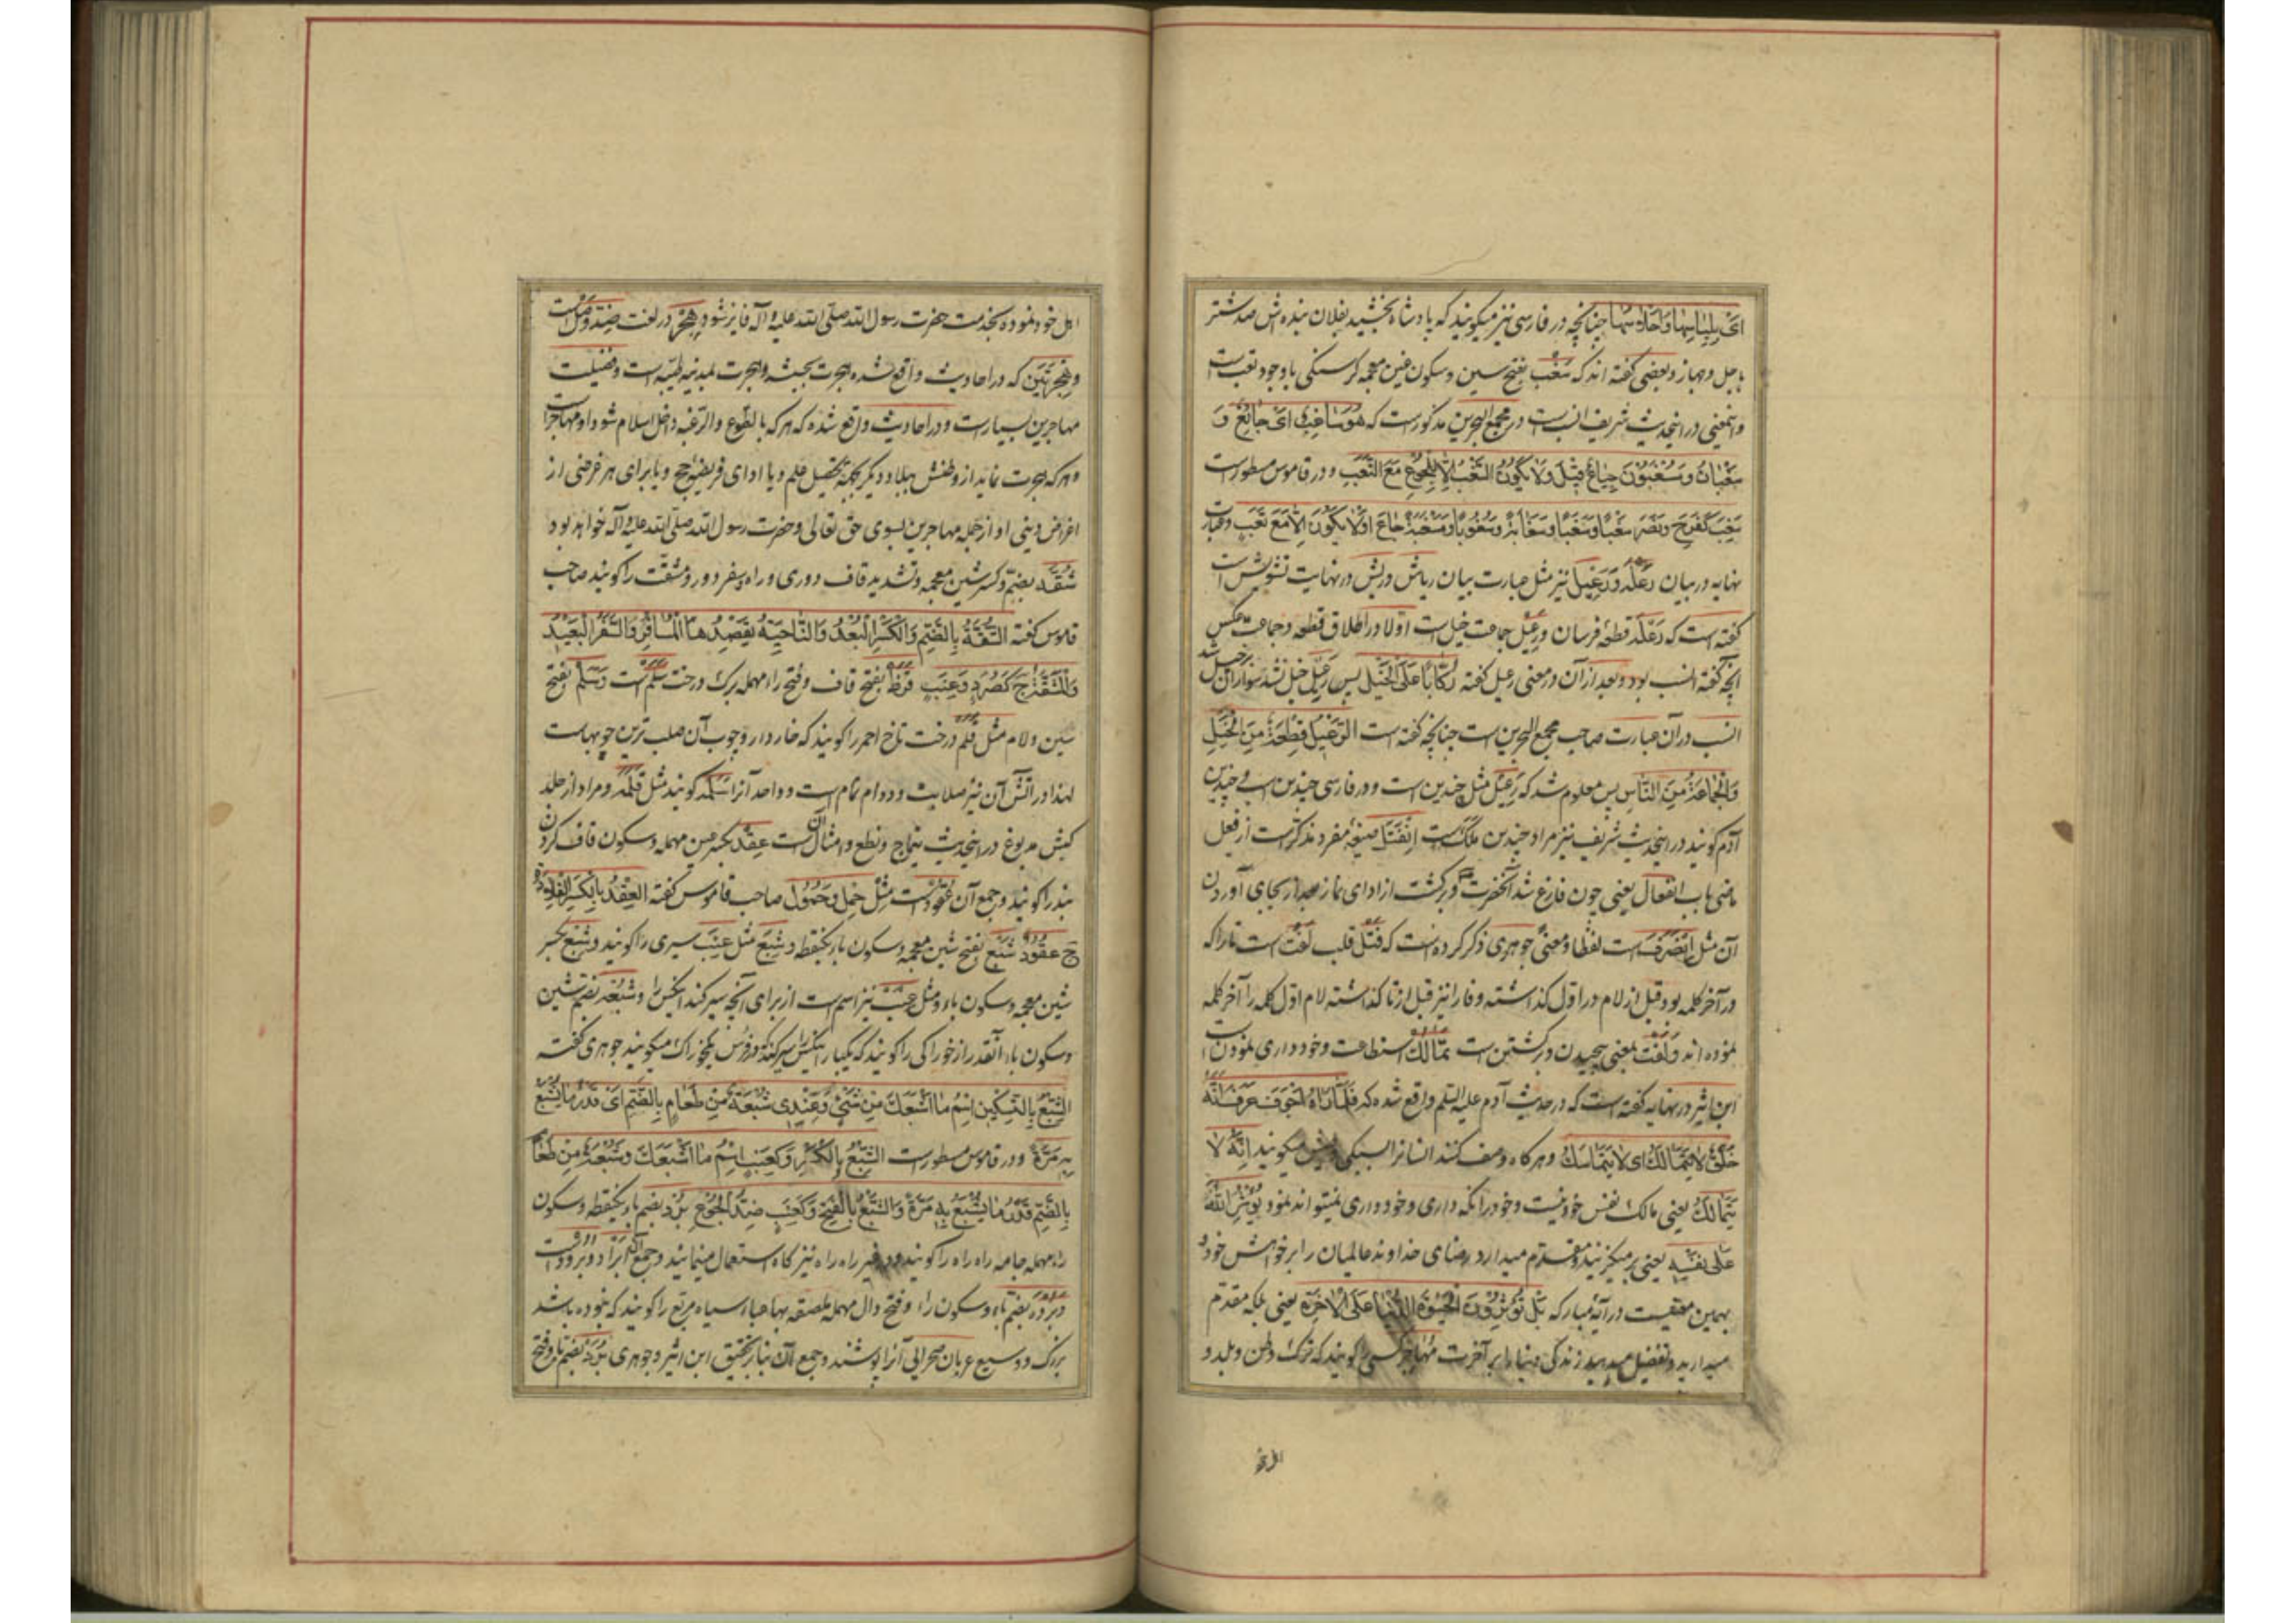 چنانچه در فارسی نیز میکویند که پادشاه بخشید بفلان بنده‌اش صد شتر
با جل و جهاز و بعضی کفته اند که سَغْب بفتح سین و سکون غین معجمه کرسنکی باوجود تعب است
و اینمعنی در اینحدیث شریف انسب است در مجمع البحرین مذکور است که هُوَ سَاغِبٌ اَیْ جَائِعٌ وَ
سَغْبَانُ وَ مُسْغِبُونَ جِیَاعٌ قِیلَ وَلَا یَکُونُ السَّغَبُ اِلَّا الْجُوعُ مَعَ التَّعَبِ و در قاموس مسطور است
سَغِبَ کَفَرِحَ وَنَصَرَ سَغْبًا وَسَغَبًا وَسَغَابَةً وَسُغُوبًا وَمَسْغَبَةً جَاعَ اَوْ لَا یَکُونُ اِلَّا مَعَ تَعَبٍ و عبارت
نهایه در بیان رَعْلَه وَ رَعِیل نیز مثل عبارت بیان ریاش و ریش در نهایت تشویش است
کفته است که رَعْلَه قطعهٔ فرسان و رَعِیل جماعت خیل است اولا در اطلاق قطعه و جماعت عکس
آنچه کفته انسب بود و بعد از آن در معنی رعیل کفته رُکَّابًا عَلَی الْخَیْلِ پس رَعِیل خیل نشد سوار آن خیل شد
انسب در آن عبارت صاحب مجمع البحرین است چنانچه کفته است الرَّعِیلُ قِطْعَةٌ مِنَ الْخَیْلِ
وَالْجَمَاعَةُ مِنَ النَّاسِ پس معلوم شد که رَعِیل مثل چندین است و در فارسی چندین اسب و چندین
آدم کویند در اینحدیث شریف نیز مراد چندین ملک است اِنْفَتَلَ صیغهٔ مفرد مذکر است از فعل
ماضی باب انفعال یعنی چون فارغ شد آنحضرت و برکشت از ادای نماز بعد از بجای آوردن
آن مثل اِنْصَرَفَ است لفظا و معنیً جوهری ذکر کرده است که فَتَلَ قلب لَفَتَ است تا را که
در آخر کلمه بود قبل از لام در اول کذاشته و فا را نیز قبل از تا کذاشته لام اول کلمه را آخر کلمه
نموده اند وَ لَفْت بمعنی پیچیدن و برکشتن است تَمَالُک استطاعت و خودداری نمودن است
ابن اثیر در نهایه کفته است که در حدیث آدم علیه السّلم واقع شده که فَلَمَّا رَاٰهُ اَجْوَفَ عَرَفَ اَنَّهُ
خَلْقٌ لَا یَتَمَالَکُ ای لَا یَتَمَاسَکُ و هرکاه وصف کنند انسانرا بسبکی میکویند اِنَّهُ لَا
یَتَمَالَکُ یعنی مالک نفس خود نیست و خود را نکه داری و خودداری نمیتواند نمود یُؤْثِرُ اللّٰهَ
عَلَی نَفْسِهِ یعنی بر میکزیند و مقدم میدارد رضای خداوند عالمیان را بر خواهش خود و
بهمین معنیست در آیهٔ مبارکه بَلْ تُؤْثِرُونَ الْحَیٰوةَ الدُّنْیَا عَلَی الْاٰخِرَةِ یعنی بلکه مقدم
میدارید و تفضیل میدهید زندکی دنیا را بر آخرت مُهَاجِر کسی را کویند که ترک وطن و بلد و
اهل خود نموده بخدمت حضرت رسول الله صلّی الله علیه و آله فایز شود و هَجْر در لغت ضد وصل است
و هِجْرَتَیْن که در احادیث واقع شده هجرت بحبشه و هجرت بمدینه طیبه است و فضیلت
مهاجرین بسیار است و در احادیث واقع شده که هرکه بالطوع و الرغبه داخل اسلام شود او مهاجر است
و هرکه هجرت نماید از وطنش ببلاد دیکر بجهة تحصیل علم و یا ادای فریضهٔ حج و یا برای هر غرضی از
اغراض دینی او از جمله مهاجرین بسوی حق تعالی و حضرت رسول الله صلّی الله علیه و آله خواهد بود
شُقَّه بضمّ و کسر شین معجمه و تشدید قاف دوری و راه و سفر دور و مشقت را کویند صاحب
قاموس کفته الشُّقَّةُ بِالضَّمِّ وَالْکَسْرِ الْبُعْدُ وَالنَّاحِیَةُ یَقْصِدُهَا الْمُسَافِرُ وَالسَّفَرُ الْبَعِیدُ
وَالْمَشَقَّةُ ج کَصُرَدٍ وَعِنَبٍ قَرَظ بفتح قاف و فتح راء مهمله برک درخت سَلَم است وَ سَلَم بفتح
سین و لام مثل قَلَم درخت تاخ احمر را کویند که خاردار و چوب آن صلب ترین چوبهاست
لهذا در آتش آن نیز صلابت و دوام تمام است و واحد آنرا سَلَمَه کویند مثل قَلَمَه و مراد از جلد
کبش مدبوغ در اینحدیث تیماج و نطع و امثال آن است عِقْد بکسر عین مهمله و سکون قاف کردن
بند را کویند و جمع آن عُقُود است مثل حِمْل و حُمُول صاحب قاموس کفته العِقْدُ بِالْکَسْرِ الْقِلَادَةُ
ج عُقُود شَبْع بفتح شین معجمه و سکون باء یکنقطه و شِبَع مثل عِنَب سیری را کویند و شِبْع بکسر
شین معجمه و سکون باء و مثل عِنَب نیز اسم است از برای آنچه سیر کند آنکس را و شُبْعَه بضم شین
و سکون باء آنقدر از خوراکی را کویند که یکبار آنکس را سیر کند و در فرس یکخوراک میکویند جوهری کفته
الشِّبْعُ بِالتَّسْکِینِ اِسْمُ مَا اَشْبَعَکَ مِنْ شَیْءٍ وَعِنْدِی شُبْعَةٌ مِنْ طَعَامٍ بِالضَّمِّ اَیْ قَدْرُ مَا یُشْبَعُ
بِهِ مَرَّةً و در قاموس مسطور است الشِّبْعُ بِالْکَسْرِ وَکَعِنَبٍ اِسْمُ مَا اَشْبَعَکَ وَشُبْعَةٌ مِنْ طَعَامٍ
بِالضَّمِّ قَدْرُ مَا یُشْبَعُ بِهِ مَرَّةً وَالشَّبْعُ بِالْفَتْحِ وَکَعِنَبٍ ضِدُّ الْجُوعِ بُرْد بضم باء یکنقطه و سکون
راء مهمله جامه راه راه را کویند و در غیر راه راه نیز کاه استعمال مینمایند و جمع آن اَبْرَاد و بُرُود است
و بُرْدَه بضم باء و سکون راء و فتح دال مهمله ملصقه بهاء عباء سیاه مربع را کویند که بوده باشد
بزرک و وسیع عربان صحرائی آنرا پوشند و جمع آن بنا بر تحقیق ابن اثیر و جوهری بُرَد بضم باء و فتح